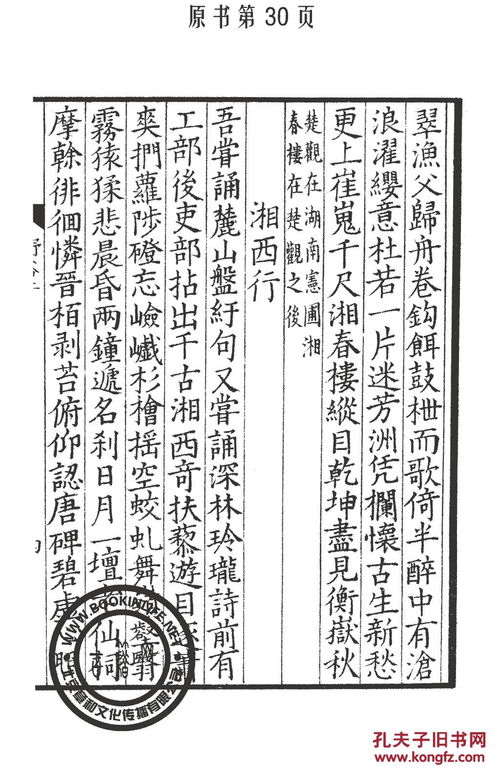 原书第30页
翠漁父歸舟卷鈎餌鼓枻而歌倚半醉中有滄
浪濯纓意杜若一片迷芳洲凭欄懷古生新愁
更上崔嵬千尺湘春樓縱目乾坤盡見衡嶽秋
楚觀在湖南憲圃湘
春樓在楚觀之後
湘西行
吾甞誦麓山盤紆句又甞誦深林玲瓏詩前有
工部後吏部拈出千古湘西竒扶藜遊目
奭捫蘿陟磴忘嶮巇杉檜揺空蛟虬舞
霧猿猱悲晨昏兩鐘遞名刹日月一壇 仙祠
摩鞥徘徊憐晉栢剥苔俯仰認唐碑碧虚
WWW.BOOKINLIFE.NET
孔夫子旧书网
www.kongfz.com